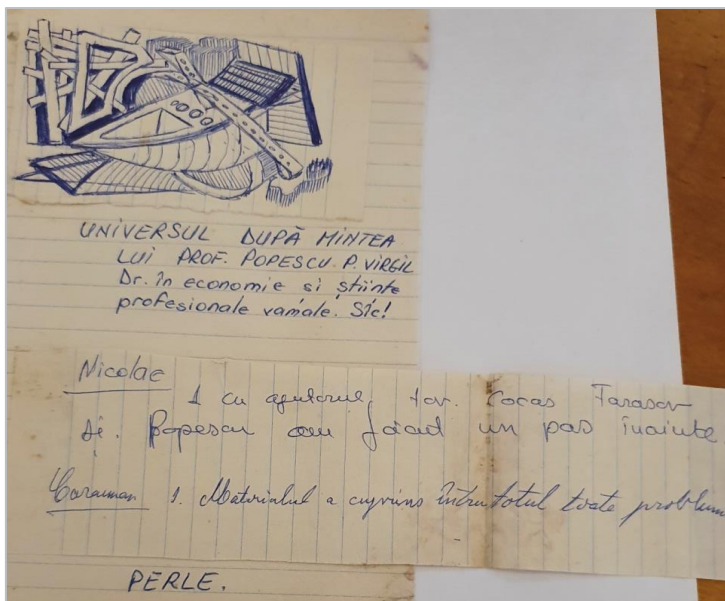 UNIVERSUL DUPĂ MINTEA
LUI PROF. POPESCU. P. VIRGIL
Dr. în economie si științe
profesionale vamale. Sic!
Nicolae
1 cu ajutorul, tov. Cocas Tarasov
și. Popescu am făcut un pas înainte
Caraiman 1. Materialul a cuprins întrutotul toate problem
PERLE.